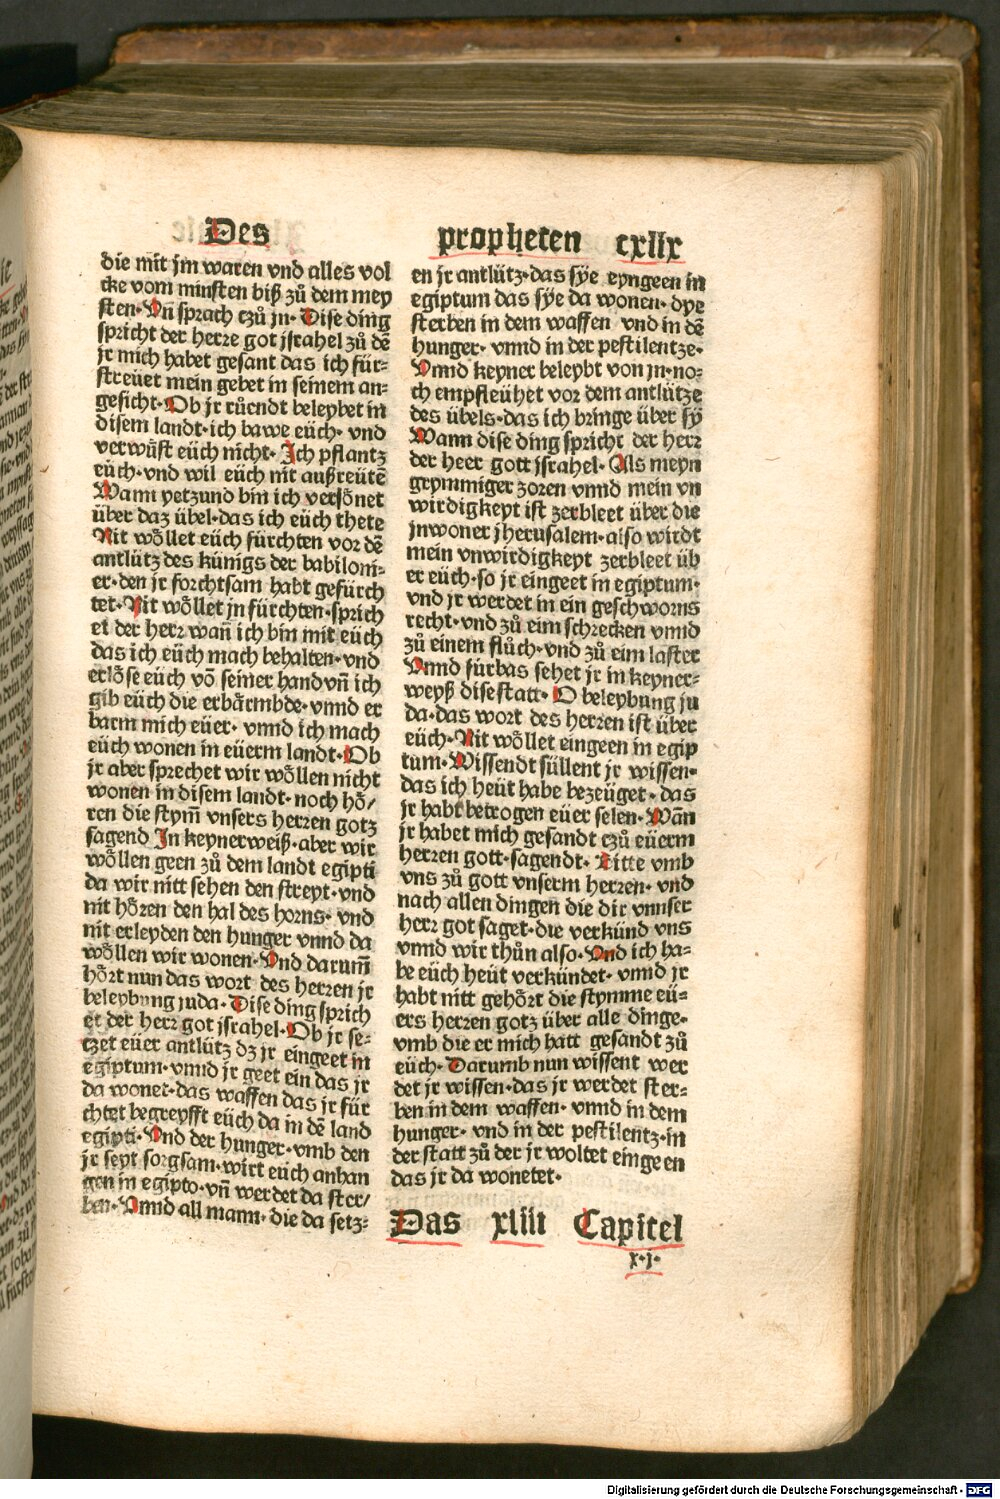 Des
propheten cxlix
die mit jm waren vnd alles vol
cke vom minsten biß zů dem mey
sten· Vñ sprach czů jn· Dise ding
spricht der herre got jsrahel zů dē
jr mich habet gesant das ich für⸗
streüet mein gebet in seinem an⸗
gesicht· Ob jr růendt beleybet in
disem landt· ich bawe eüch· vnd
verwůst eüch nicht· Ich pflantz
eüch· vnd wil eüch nit außreütē
Wann yetzund bin ich versönet
über daz übel· das ich eüch thete
Nit wöllet eüch fürchten vor dē
antlütz des künigs der babiloni⸗
er· den jr forchtsam habt gefürch
tet· Nit wöllet jn fürchten· sprich
et der herr wañ ich bin mit eüch
das ich eüch mach behalten· vnd
erlöse eüch vō seiner hand vñ ich
gib eüch die erbärmbde· vnnd er
barm mich eüer· vnnd ich mach
eüch wonen in eüerm landt· Ob
jr aber sprechet wir wöllen nicht
wonen in disem landt· noch hö/
ren die stym̄ vnsers herren gotz
sagend In keynerweiß· aber wir
wöllen geen zů dem landt egipti
da wir nitt sehen den streyt· vnd
nit hören den hal des horns· vnd
nit erleyden den hunger vnnd da
wöllen wir wonen· Vnd darum̄
hört nun das wort des herren jr
beleybung juda· Dise ding sprich
et der herr got jsrahel· Ob jr se⸗
czet eüer antlütz dz jr eingeet in
egiptum· vnnd jr geet ein das jr
da wonet· das waffen das jr für
chtet begreyfft eüch da in dē land
egipti· Vnd der hunger· vmb den
jr seyt sorgsam· wirt eüch anhan
gen in egipto· vñ werdet da ster/
ben· Vnnd all mann· die da setz⸗
en jr antlütz· das sÿe eyngeen in
egiptum das sÿe da wonen· dye
sterben in dem waffen vnd in dē
hunger· vnnd in der pestilentze·
Vnnd keyner beleybt von jn· no⸗
ch empfleühet vor dem antlütze
des übels· das ich bringe über sÿ
Wann dise ding spricht der herr
der heer gott jsrahel· Als meyn
grymmiger zoren vnnd mein vn
wirdigkeyt ist zerbleet über die
jnwoner jherusalem· also wirdt
mein vnwirdigkeyt zerbleet üb
er eüch· so jr eingeet in egiptum·
vnd jr werdet in ein geschworns
recht· vnd zů eim schrecken vnnd
zů einem flůch· vnd zů eim laster
Vnnd fürbas sehet jr in keyner⸗
weyß dise statt· O beleybung ju
da· das wort des herren ist über
eüch· Nit wöllet eingeen in egip
tum· Wissendt süllent jr wissen·
das ich heüt habe bezeüget· das
jr habt betrogen eüer selen· Wān
jr habet mich gesandt czů eüerm
herren gott· sagendt· Bitte vmb
vns zů gott vnserm herren· vnd
nach allen dingen die dir vnnser
herr got saget· die verkünd vns
vnnd wir thůn also· Vnd ich ha⸗
be eüch heüt verkündet· vnnd jr
habt nitt gehört die stymme eü⸗
ers herren gotz über alle dinge·
vmb die er mich hatt gesandt zů
eüch· Darumb nun wissent wer
det jr wissen· das jr werdet ster⸗
ben in dem waffen· vnnd in dem
hunger· vnd in der pestilentz· in
der statt zů der jr woltet eingeen
das jr da wonetet·
Das xliii Capitel
x·j·
Digitalisierung gefördert durch die Deutsche Forschungsgemeinschaft - DFG